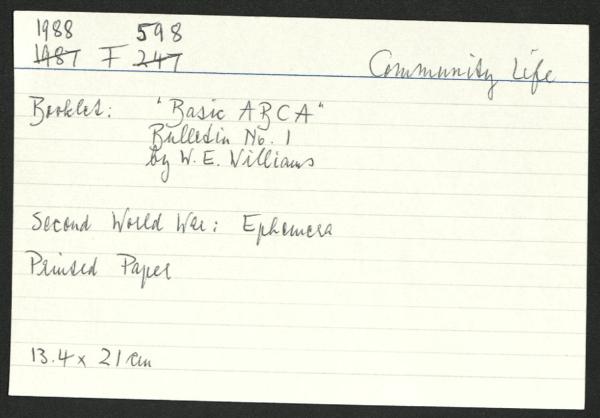 1988 598
1987 F 247
Community Life
Booklet: "Basic ABCA"
Bulletin No. 1
by W. E. Williams
Second World War: Ephemera
Printed Paper
13.4 x 21 cm